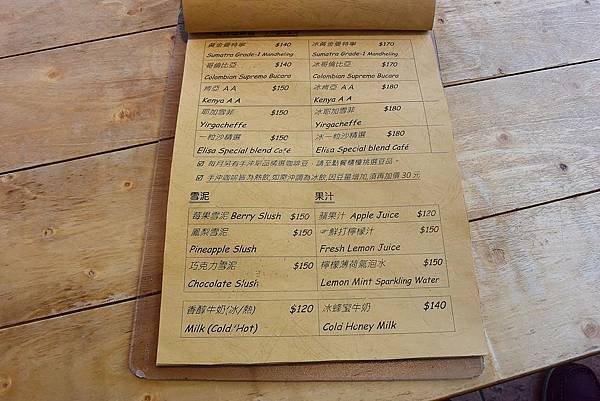 黃金曼特寧 $140 冰黃金曼特寧 $170
Sumatra Grade-1 Mandheling Sumatra Grade-1 Mandheling
哥倫比亞 $140 冰哥倫比亞 $170
Colombian Supremo Bucara Colombian Supremo Bucara
肯亞 AA $150 冰肯亞 AA $180
Kenya AA Kenya AA
耶加雪菲 $150 冰耶加雪菲 $180
Yirgacheffe Yirgacheffe
一粒沙精選 $150 冰一粒沙精選 $180
Elisa Special blend Café Elisa Special blend Café
☑ 每月另有手沖單品精選咖啡豆，請至點餐櫃檯挑選豆品。
☑ 手沖咖啡皆為熱飲,如需沖調為冰飲,因豆量增加,須再加價30元
雪泥 果汁
莓果雪泥 Berry Slush $150 蘋果汁 Apple Juice $120
鳳梨雪泥 $150 ☞鮮打檸檬汁 $150
Pineapple Slush Fresh Lemon Juice
巧克力雪泥 $150 檸檬薄荷氣泡水 $150
Chocolate Slush Lemon Mint Sparkling Water
香醇牛奶(冰/熱) $120 冰蜂蜜牛奶 $140
Milk (Cold/Hot) Cold Honey Milk